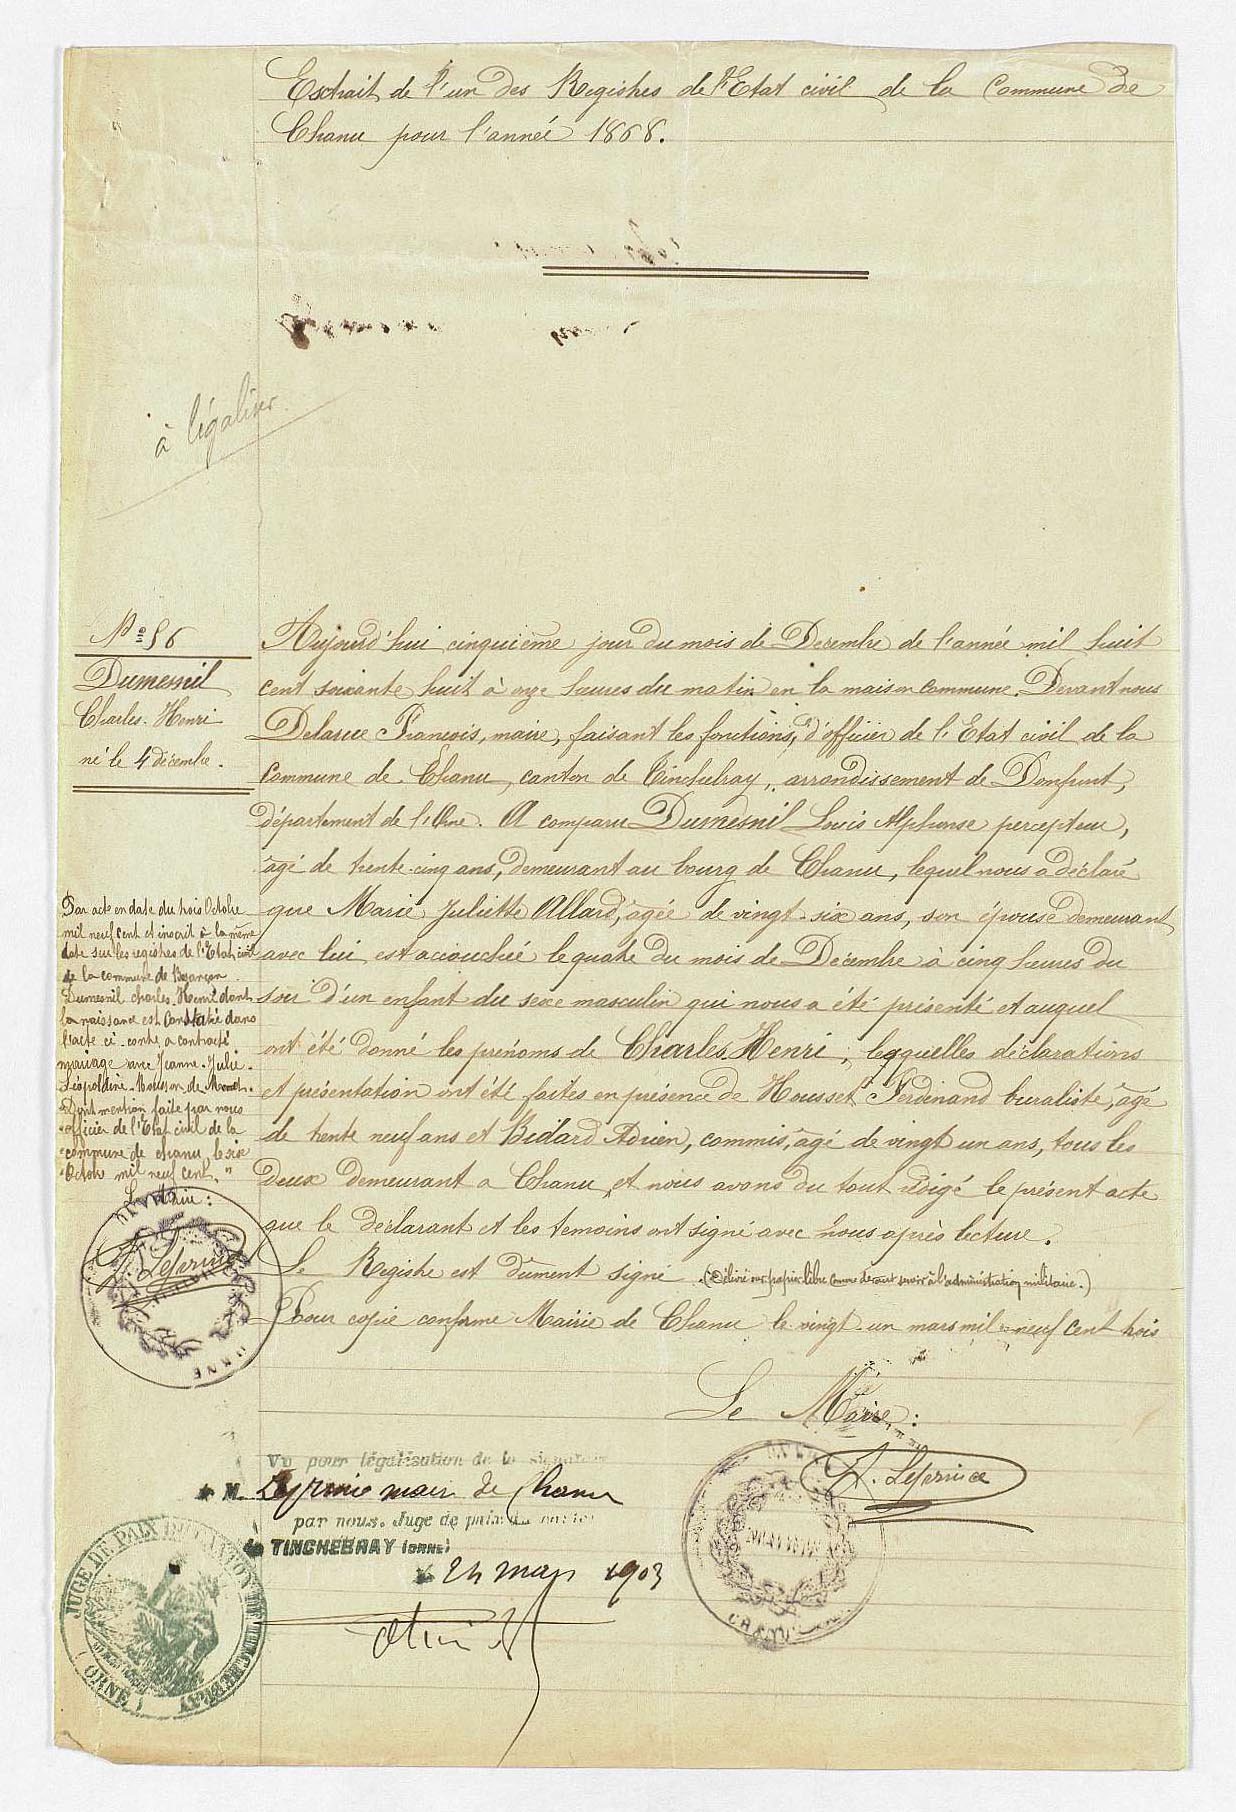 Extrait de l'un des Registres de l'Etat civil de la Commune de
Chanu pour l'année 1868.
à légaliser
N° 86
Dumesnil
Charles-Henri
né le 4 décembre.
Aujourd'hui cinquième jour du mois de Decembre de l'année mil huit
cent soixante huit à onze heures du matin en la maison commune. Devant nous
Delarue François, maire, faisant les fonctions d'officier de l'Etat civil de la
Commune de Chanu, canton de Tinchebray, arrondissement de Domfront,
département de l'Orne. A comparu Dumesnil Louis Alphonse percepteur,
âgé de trente-cinq ans, demeurant au bourg de Chanu, lequel nous a déclaré
que Marie Juliette Allard, agée de vingt-six ans, son épouse demeurant
avec lui est accouchée le quatre du mois de Décembre à cinq heures du
soir d'un enfant du sexe masculin qui nous a été présenté et auquel
ont été donné les prénoms de Charles Henri, lesquelles déclarations
et présentation ont été faites en présence de Housset Ferdinand buraliste, âgé
de trente neuf ans et Bidard Adrien, commis, âgé de vingt un ans, tous les
deux demeurant a Chanu, et nous avons du tout rédigé le présent acte
que le déclarant et les temoins ont signé avec nous après lecture.
Le Registre est dûment signé. (Délivré sur papier libre comme devant servir à l'administration militaire.)
Pour copie conforme Mairie de Chanu le vingt un mars mil neuf cent trois
Par acte en date du trois Octobre
mil neuf cent et inscrit à la même
date sur les registres de l'Etat civil
de la commune de Besançon
Dumesnil Charles Henri dont
la naissance est constatée dans
l'acte ci-contre a contracté
mariage avec Jeanne-Julie-
Léopoldine-
Dont mention faite par nous
officier de l'Etat civil de la
commune de chanu, le six
Octobre mil neuf cent."
Le Maire:
Le Maire:
Vu pour légalisation de la signature
de M. maire de Chanu
par nous, Juge de paix du canton
de TINCHEBRAY (ORNE)
le 24 mars 1903
JUGE DE PAIX DU CANTON DE TINCHEBRAY
(ORNE)
ORNE